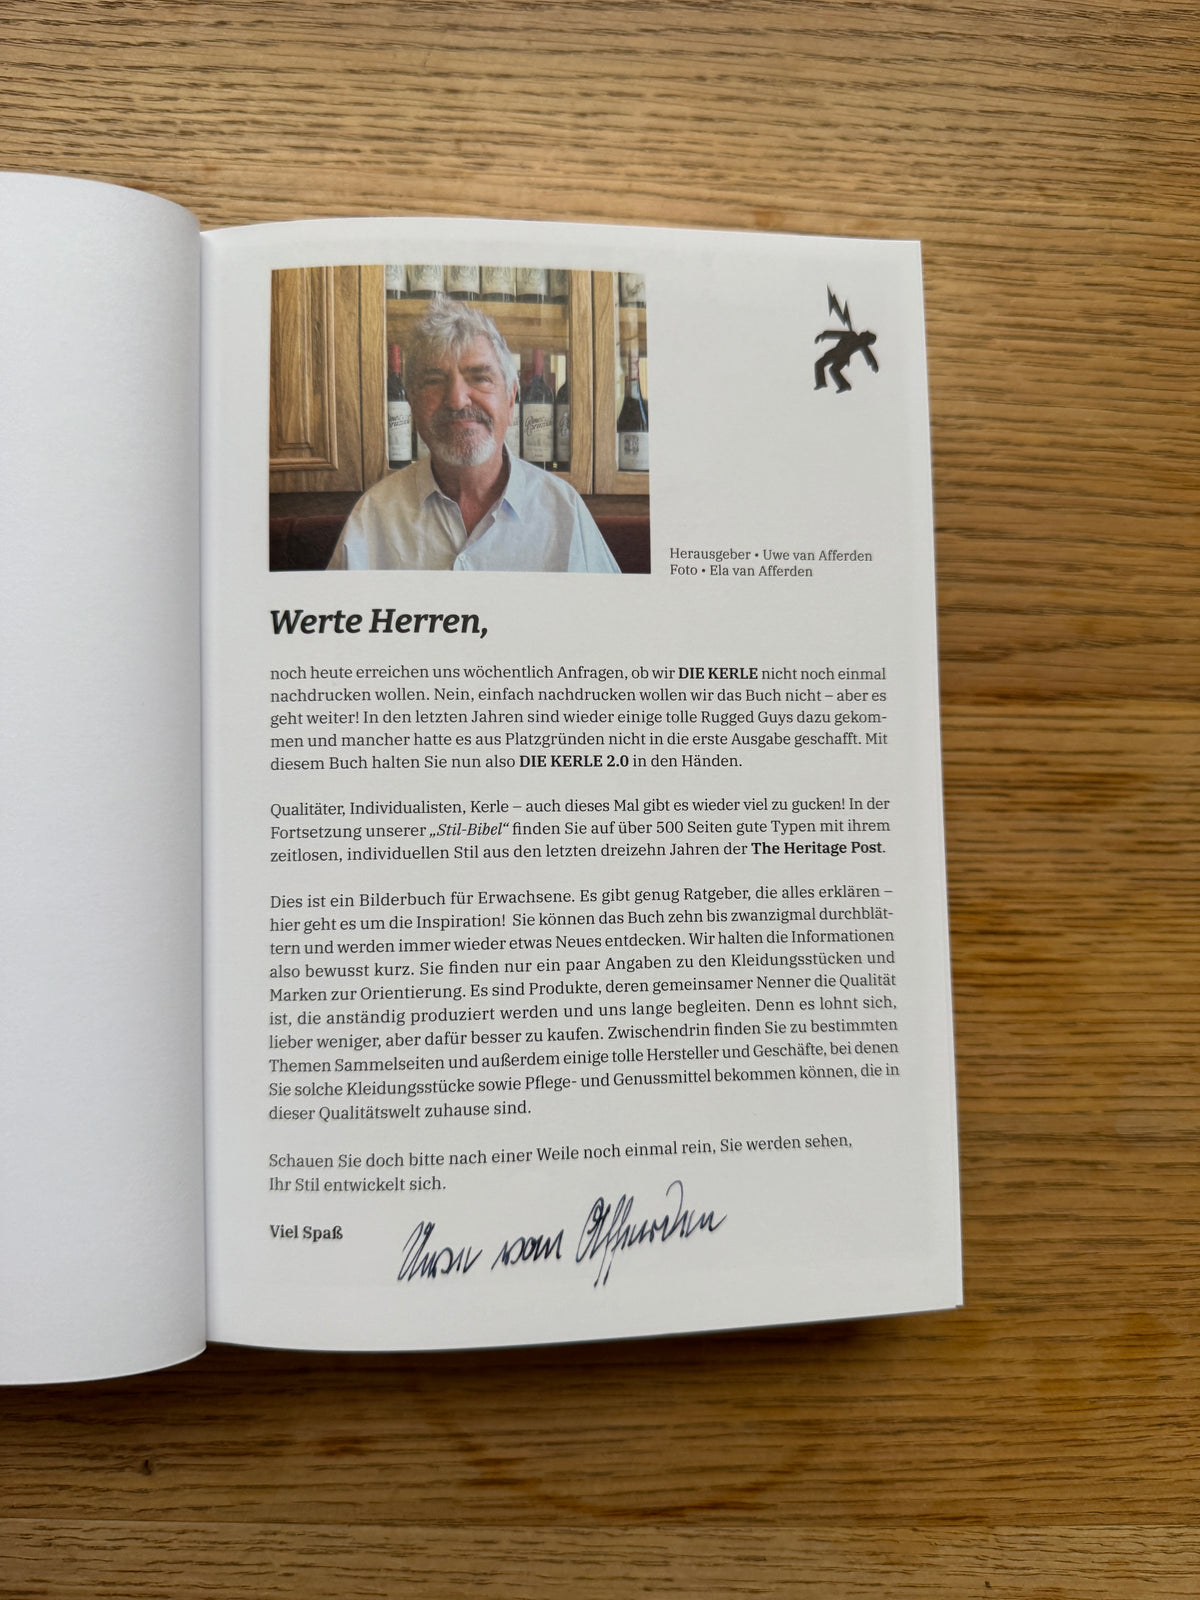 Herausgeber • Uwe van Afferden
Foto • Ela van Afferden
Werte Herren,
noch heute erreichen uns wöchentlich Anfragen, ob wir DIE KERLE nicht noch einmal
nachdrucken wollen. Nein, einfach nachdrucken wollen wir das Buch nicht – aber es
geht weiter! In den letzten Jahren sind wieder einige tolle Rugged Guys dazu gekom-
men und mancher hatte es aus Platzgründen nicht in die erste Ausgabe geschafft. Mit
diesem Buch halten Sie nun also DIE KERLE 2.0 in den Händen.
Qualitäter, Individualisten, Kerle – auch dieses Mal gibt es wieder viel zu gucken! In der
Fortsetzung unserer „Stil-Bibel“ finden Sie auf über 500 Seiten gute Typen mit ihrem
zeitlosen, individuellen Stil aus den letzten dreizehn Jahren der The Heritage Post.
Dies ist ein Bilderbuch für Erwachsene. Es gibt genug Ratgeber, die alles erklären –
hier geht es um die Inspiration! Sie können das Buch zehn bis zwanzigmal durchblät-
tern und werden immer wieder etwas Neues entdecken. Wir halten die Informationen
also bewusst kurz. Sie finden nur ein paar Angaben zu den Kleidungsstücken und
Marken zur Orientierung. Es sind Produkte, deren gemeinsamer Nenner die Qualität
ist, die anständig produziert werden und uns lange begleiten. Denn es lohnt sich,
lieber weniger, aber dafür besser zu kaufen. Zwischendrin finden Sie zu bestimmten
Themen Sammelseiten und außerdem einige tolle Hersteller und Geschäfte, bei denen
Sie solche Kleidungsstücke sowie Pflege- und Genussmittel bekommen können, die in
dieser Qualitätswelt zuhause sind.
Schauen Sie doch bitte nach einer Weile noch einmal rein, Sie werden sehen,
Ihr Stil entwickelt sich.
Viel Spaß
van Afferden